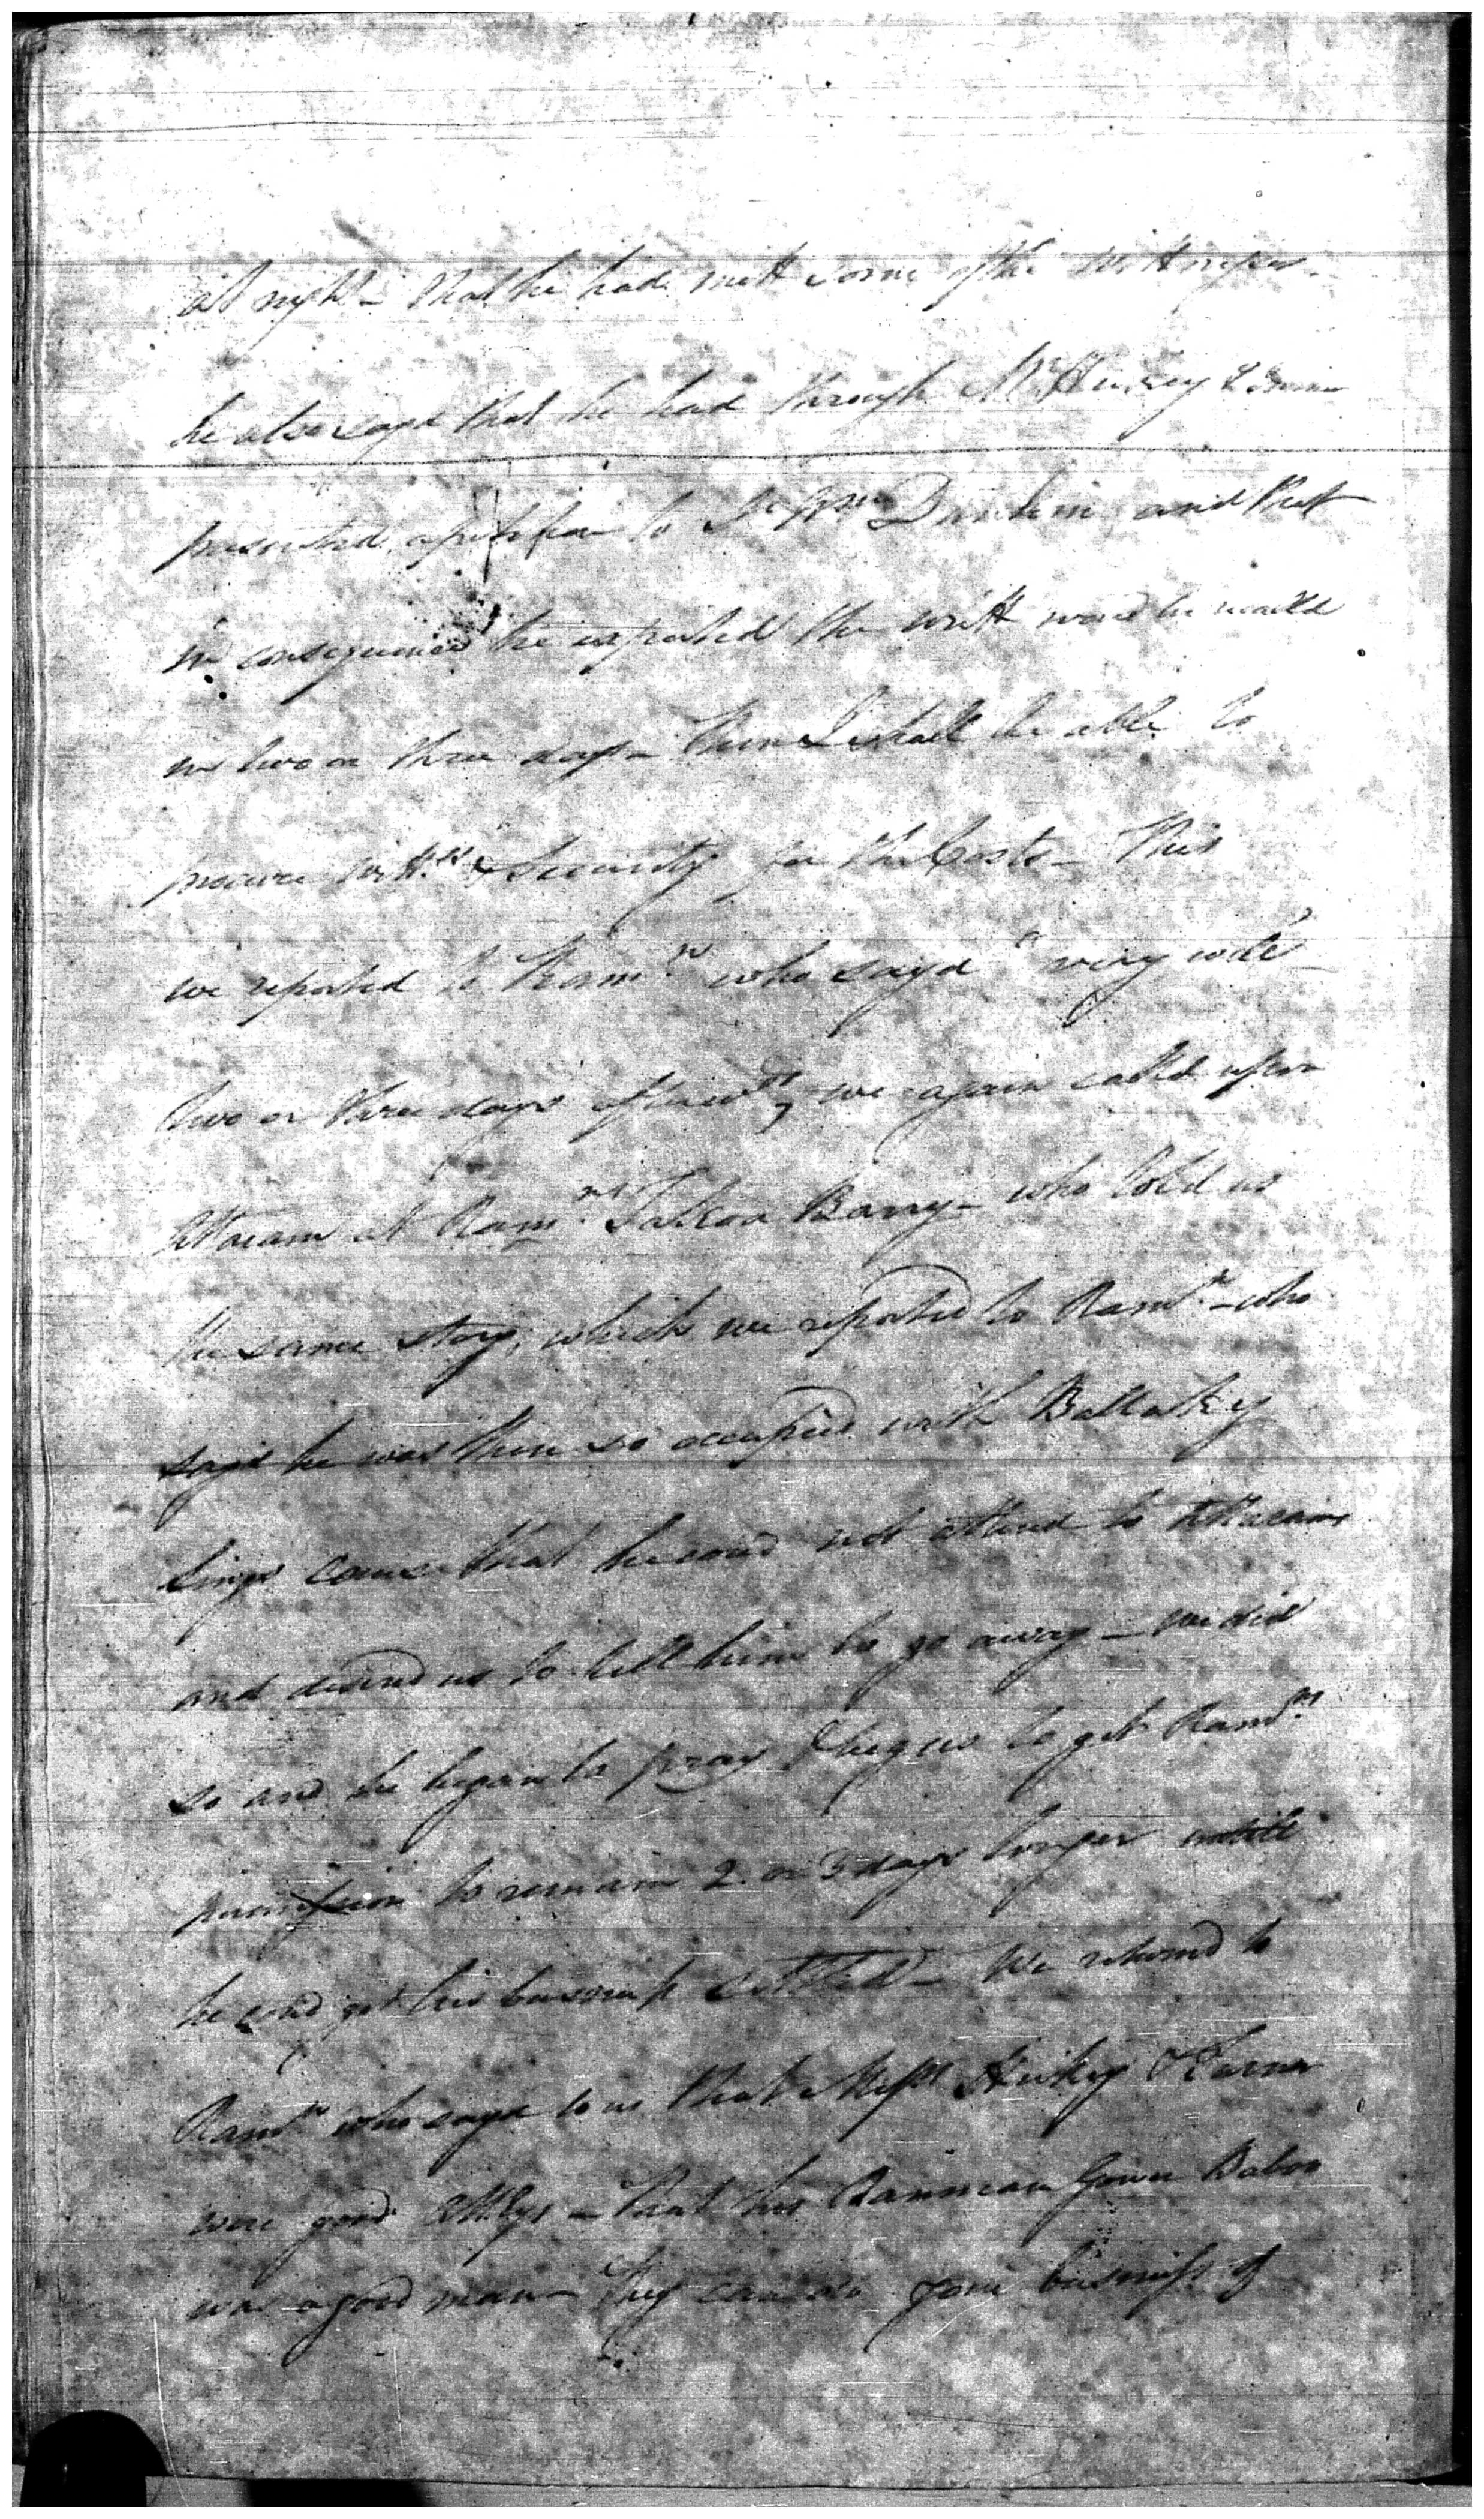 at night - that he had mett some of the wittnesses
he also sayd that he had through Mr Hickey &
presented a petition to Sr Wm Dunkin and that
in consequence he expected the writt woud be recalld
in two or three days - then I shall be able to
procure witts & Security for the Costs - This
we reported to Ramn who sayd "very well"
two or three days afterwds we again called upon
at Ramns Takoor Barry - who told us
the same story, which we reported to Ramn - who
sayd he was then so occupied with Ballakey
Sings cause that he coud not attend to
and desired us to tell him to go away - we did
so and he began to pray & beg us to get Ramns
permission to remain 2 or 3 days longer untill
he coud get his business settled - We returned to
Ramn who sayd to us that Messrs Hickey & Turner
were good Attys - that his Bannian Gower Baboo
was a good man - they can do your business if